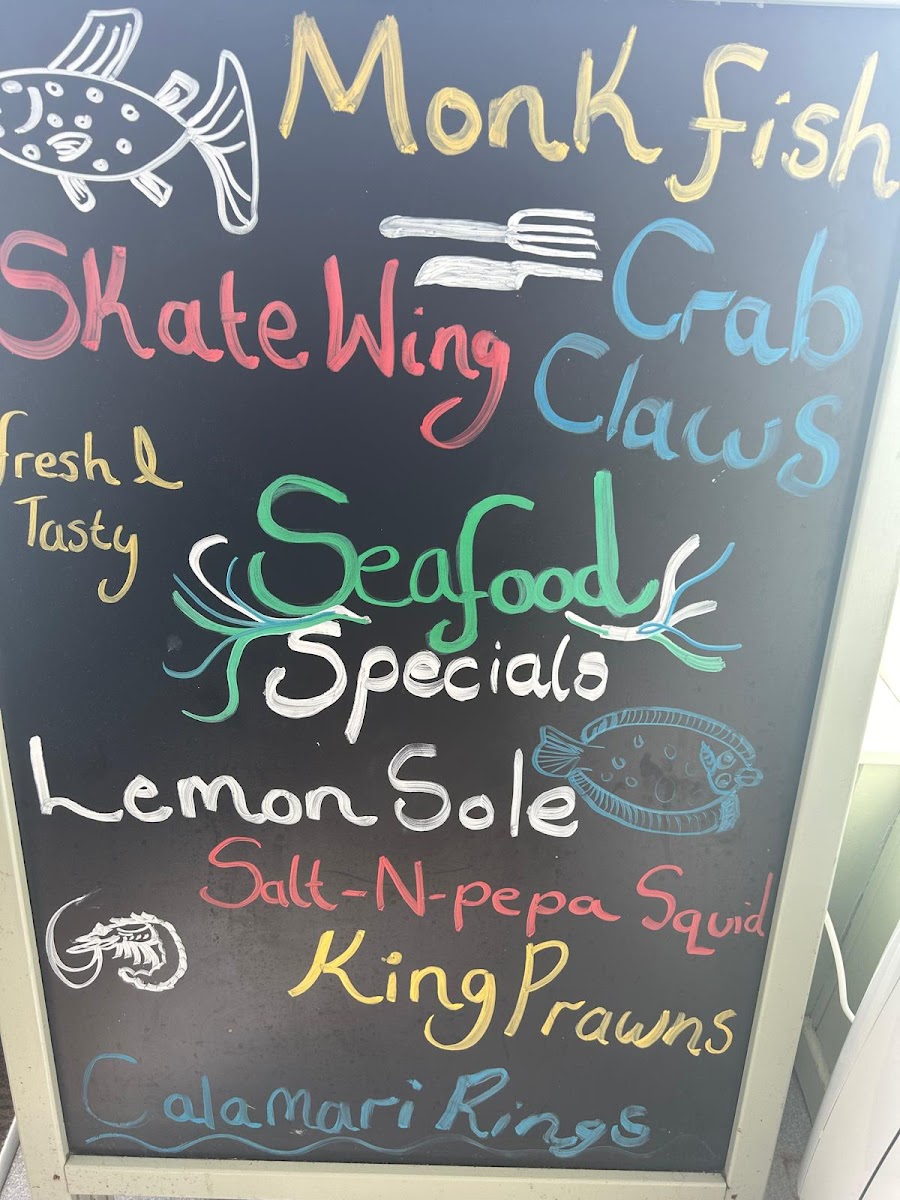 Monk fish
Skate Wing
Crab
Claws
fresh &
Tasty
Seafood
Specials
Lemon Sole
Salt-N-pepa Squid
King Prawns
Calamari Rings